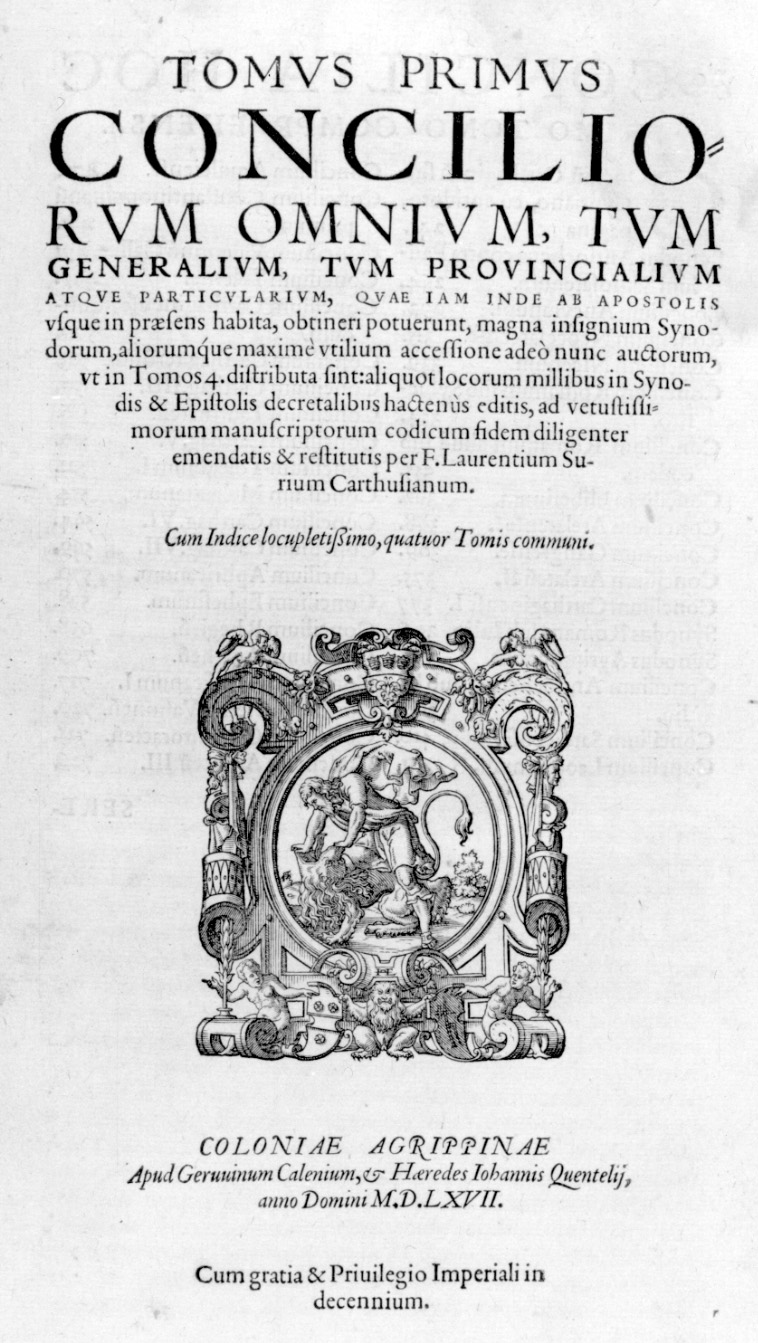 TOMVS PRIMVS
CONCILIO=
RVM OMNIVM, TVM
GENERALIVM, TVM PROVINCIALIVM
ATQVE PARTICVLARIVM, QVAE IAM INDE AB APOSTOLIS
vſque in præſens habita, obtineri potuerunt, magna inſignium Syno-
dorum, aliorumq́ue maximè vtilium acceſſione adeò nunc auctorum,
vt in Tomos 4. diſtributa ſint: aliquot locorum millibus in Syno-
dis & Epiſtolis decretalibus hactenùs editis, ad vetuſtiſſi=
morum manuſcriptorum codicum fidem diligenter
emendatis & reſtitutis per F. Laurentium Su-
rium Carthuſianum.
Cum Indice locupletiſsimo, quatuor Tomis communi.
COLONIAE AGRIPPINAE
Apud Geruuinum Calenium, & Hæredes Iohannis Quentelij,
anno Domini M.D.LXVII.
Cum gratia & Priuilegio Imperiali in
decennium.